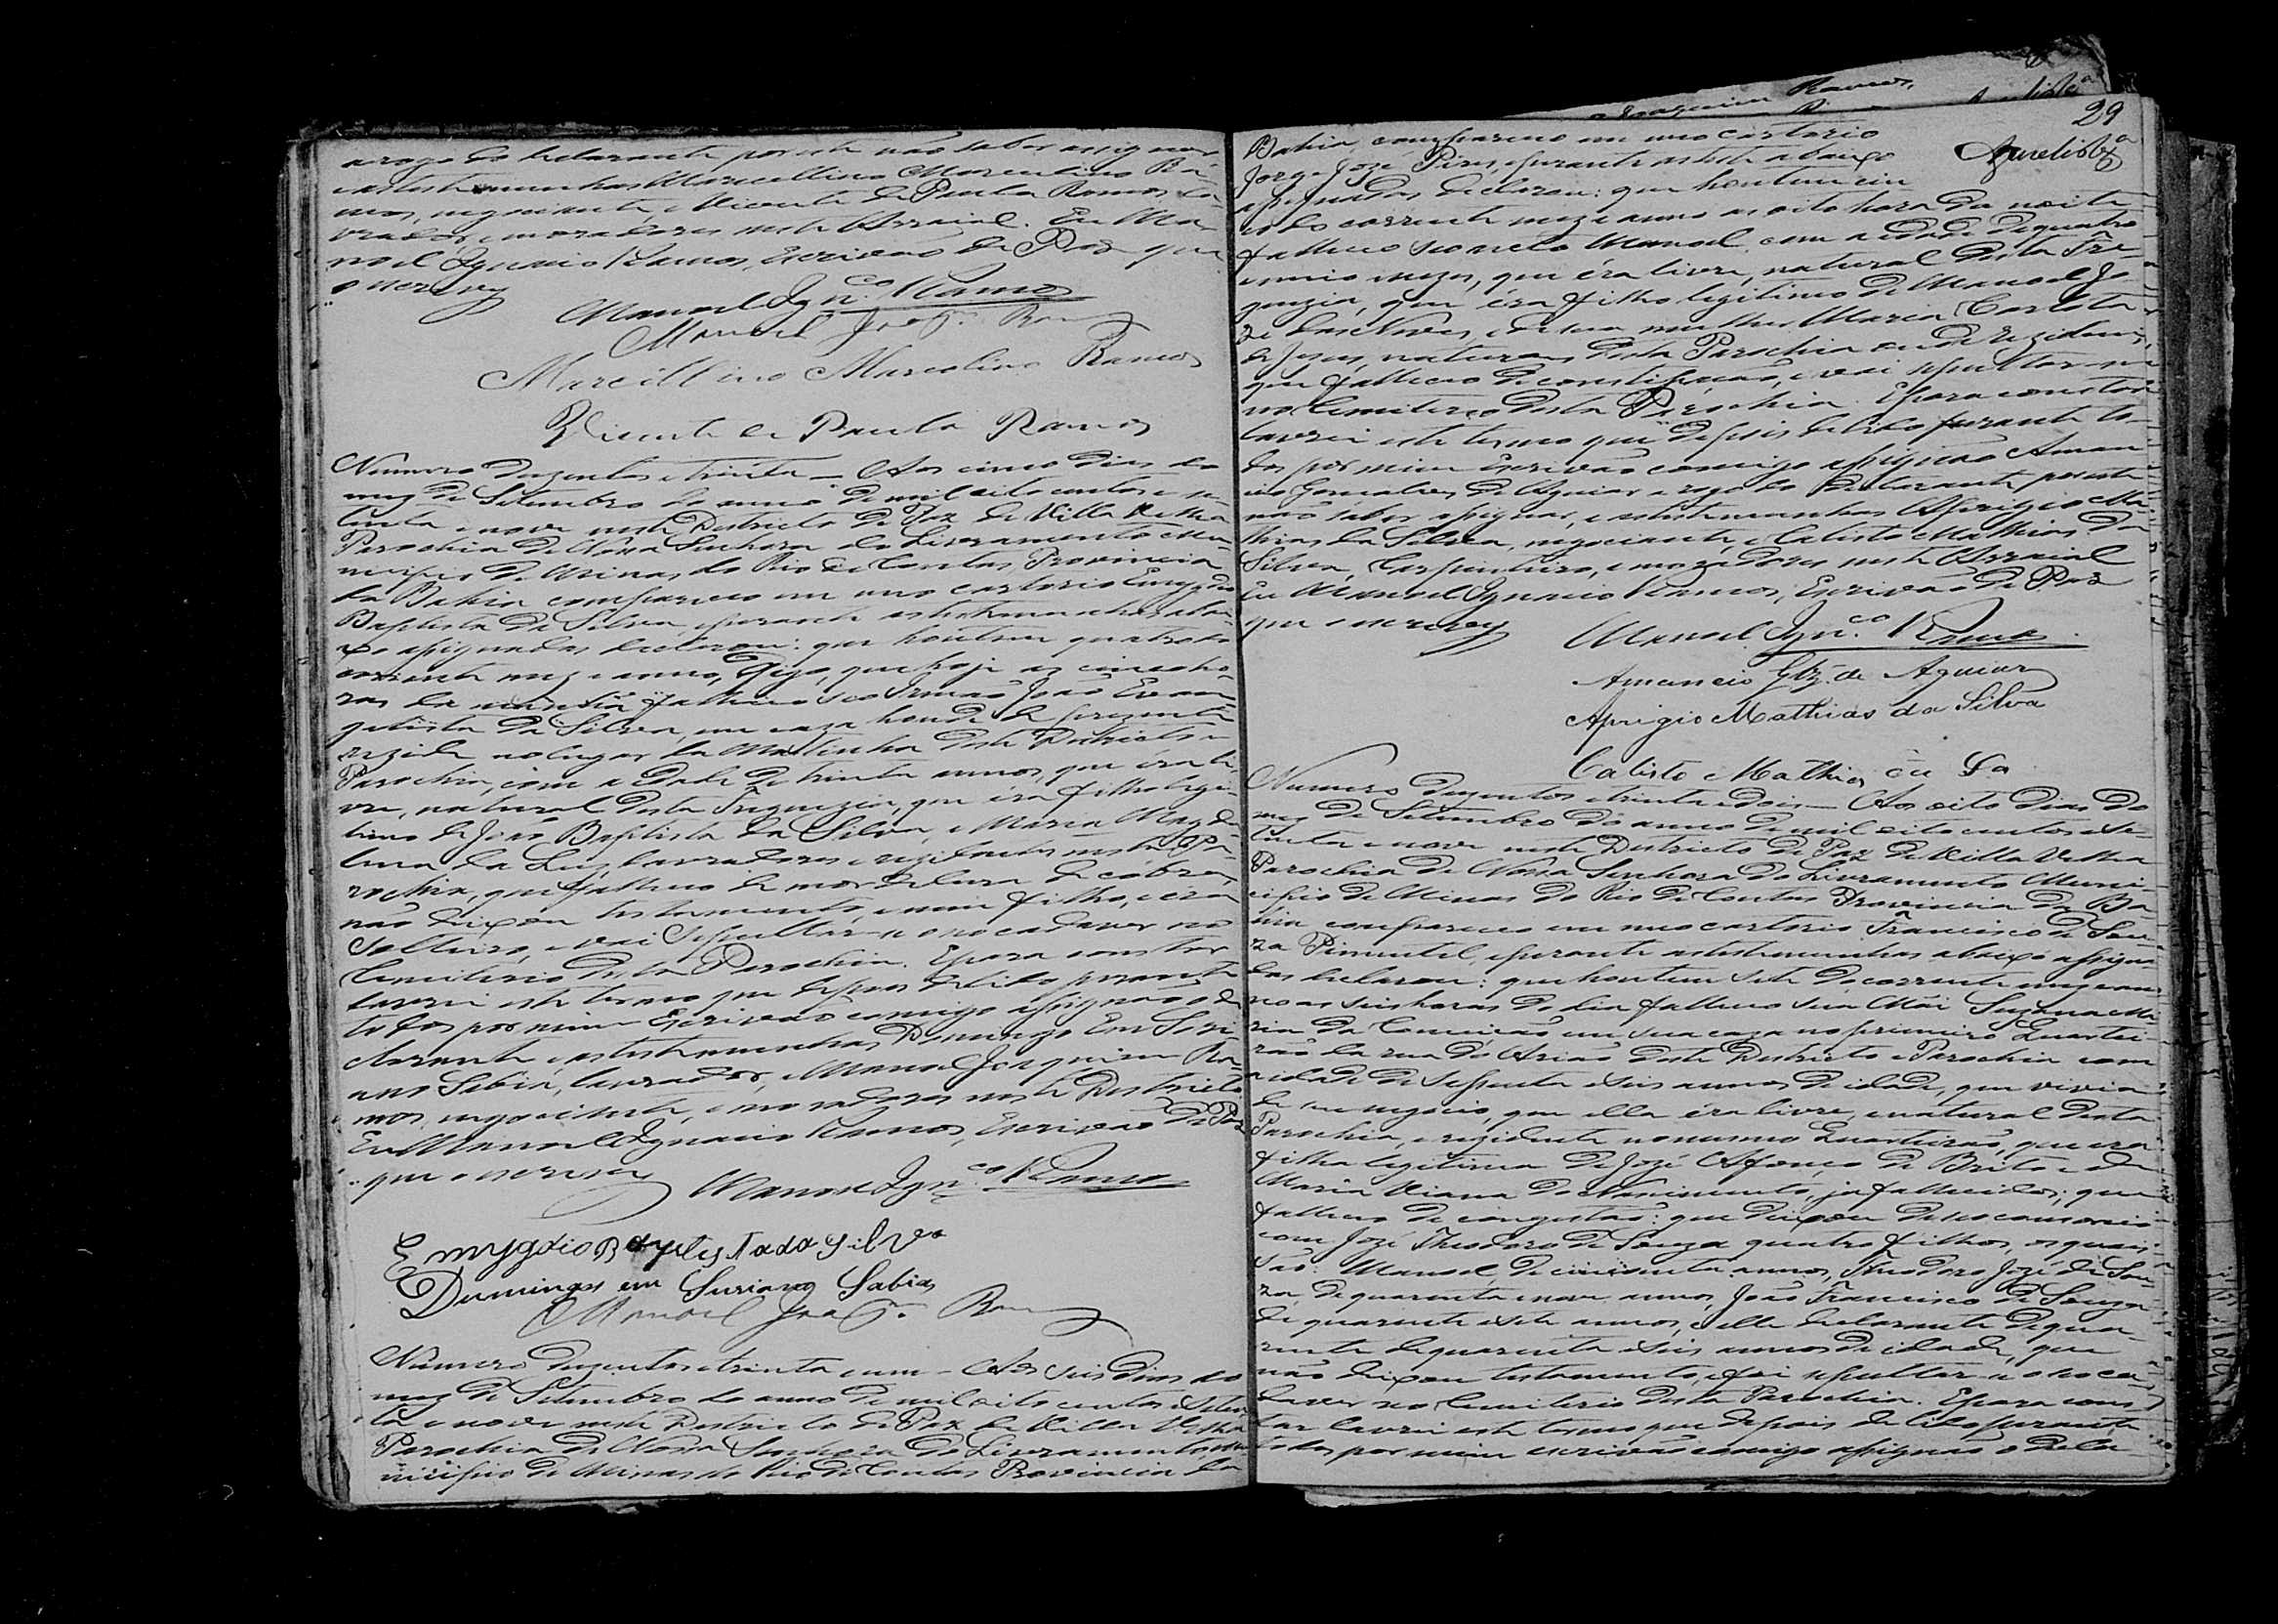 arogo do declarante por este não saber assignar
e as testemunhas Marcellino Marcolino Ra-
mos, negociante, e Vicente de Paula Ramos, la-
vrador, e moradores neste Arraial. Eu Ma-
noel Ignacio Ramos, Escrivão de Paz que
o escrevy
Manoel Ign.co Ramos
Manoel Joaq.m Ramos
Marcillino Marcolino Ramos
Vicente de Paula Ramos
Numero duzentos e trinta — Aos cinco dias do
mez de Setembro do anno de mil oito centos e se-
tenta e nove neste Destricto de Paz de Villa Velha
Parochia de Nossa Senhora do Livramento Mu-
nicipio de Minas do Rio de Contas Provincia
da Bahia compareceo em meo cartorio Emygdio
Baptista da Silva, e perante as testemunhas abai-
xo assignadas declarou: que hontem quatro do
corrente mez e anno, Digo, que hoje as cinco ho-
ras da manhã falleceo seo Irmão João Evan-
gelista da Silva, em caza honde de prezente
rezide no lugar da Matinha deste Destricto e
Parochia, com a idade de trinta annos, que éra li-
vre, natural desta Freguezia, que éra filho legi-
timo de João Baptista da Silva, e Maria Magda-
lena da Luis, lavradores e rezidentes nesta Pa-
rochia, que falleceo de mordedura de cóbra,
não deixou testamento, e nem filho, e éra
Solteiro, e vai sepultar-se o seo cadaver no
Cemiterio desta Parochia. E para constar
lavrei este termo que depois de lido perante
todos por mim Escrivão comigo assignão o de-
clarante, e as testemunhas Domingos Em Suri-
ano Sabia, lavrador, e Manoel Joaquim Ra-
mos, negociante, e moradores neste Destricto
Eu Manoel Ignacio Ramos, Escrivão de Paz
que o escrevy
Manoel Ign.co Ramos
Emygdio Baptista da Silva
Dumingos em Suriano Sabia
Manoel Joaq.m Ramos
Numero duzentos e trinta e um — Aos seis dias do
mez de Setembro do anno de mil oito centos e seten-
ta e nove neste Destricto de Paz de Villa Velha
Parochia de Nossa Senhora do Livramento, Mu-
nicipio de Minas do Rio de Contas Provincia da
29
Bahia, compareceo em meo cartorio
Jorge José Pires, e perante as teste abaixo
assignadas declarou: que hontem cin-
co do corrente mez e anno as oito hora da noite
falleceo seo neto Manoel, com a idade de quatro
e meio mezes, que éra livre, natural desta Fre-
guezia, que éra filho legitimo de Manoel Jo-
zé das Neves, e de sua mulher Maria Carlota
de Jesus, naturaes desta Parochia onde rezidem,
que falleceo de constipação, e vai sepultar-se
no Cemiterio desta Parochia. E para constar
lavrei este termo que depois de lido perante to-
dos por mim Escrivão comigo assignão Aman-
cio Gonsalves de Aguiar a rogo do declarante por este
não saber assignar, e as testemunhas Aprigio Ma-
thias da Silva, negociante, e Calisto Mathias da
Silva, Carpinteiro, e moradores neste Arraial
Eu Manoel Ignacio Ramos, Escrivão de Paz
que o escrevy
Manoel Ign.co Ramos
Amancio Glz. de Aguiar
Aprigio Mathias da Silva
Calisto Mathias da Sa
Numero duzentos e trinta e dois — Aos oito dias do
mez de Setembro do anno de mil oito centos e se-
tenta e nove neste Destricto de Paz de Villa Velha
Parochia de Nossa Senhora do Livramento Muni-
cipio de Minas do Rio de Contas Provincia da Ba-
hia compareceo em meo cartorio Francisco de Sou-
za Pimentel, e perante as testemunhas abaixo assigna-
das declarou: que hontem sete do corrente mez e an-
no as seis horas do dia falleceo sua Mãi Suzana Ma-
ria da Conceição em sua caza no primeiro Quartei-
rão da rua do Arião deste Destricto e Parochia com
a idade de setenta e seis annos de idade, que vivia
de seu negocio, que ella éra livre, e natural desta
Parochia, e rezidente no mesmo Quarteirão, que era
filha legitima de José Afonço de Brito e de
Maria Viana do Nascimento, ja fallecidos; que
falleceo de congestão: que deixou de seo consorcio
com José Theodoro de Souza quatro filhos, os quais
são: Manoel, de cincoenta annos, Theodoro José de Sou-
za, de quarenta e nove annos, João Francisco de Souza
de quarenta e sete annos, e elle declarante de qua-
renta de quarenta e seis annos de idade, que
não deixou testamento, e foi sepultar-se o seo ca-
daver no Cemiterio desta Parochia. E para cons-
tar lavrei este termo que depois de lido perante
todos por mim escrivão comigo assignão o decla-